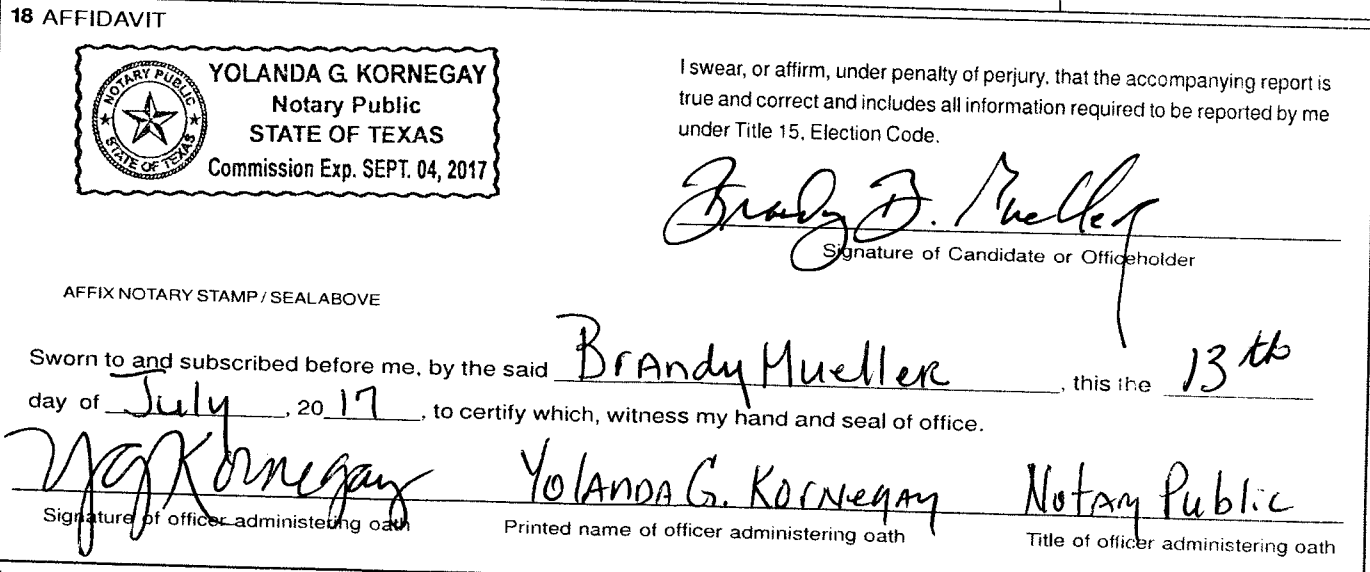 18 AFFIDAVIT
NOTARY PUBLIC
STATE OF TEXAS
YOLANDA G. KORNEGAY
Notary Public
STATE OF TEXAS
Commission Exp. SEPT. 04, 2017
I swear, or affirm, under penalty of perjury, that the accompanying report is
true and correct and includes all information required to be reported by me
under Title 15, Election Code.
Brandy D. Mueller
Signature of Candidate or Officeholder
AFFIX NOTARY STAMP / SEAL ABOVE
Sworn to and subscribed before me, by the said Brandy Mueller, this the 13th
day of July, 20 17, to certify which, witness my hand and seal of office.
YGKornegay Yolanda G. Kornegay Notary Public
Signature of officer administering oath Printed name of officer administering oath Title of officer administering oath